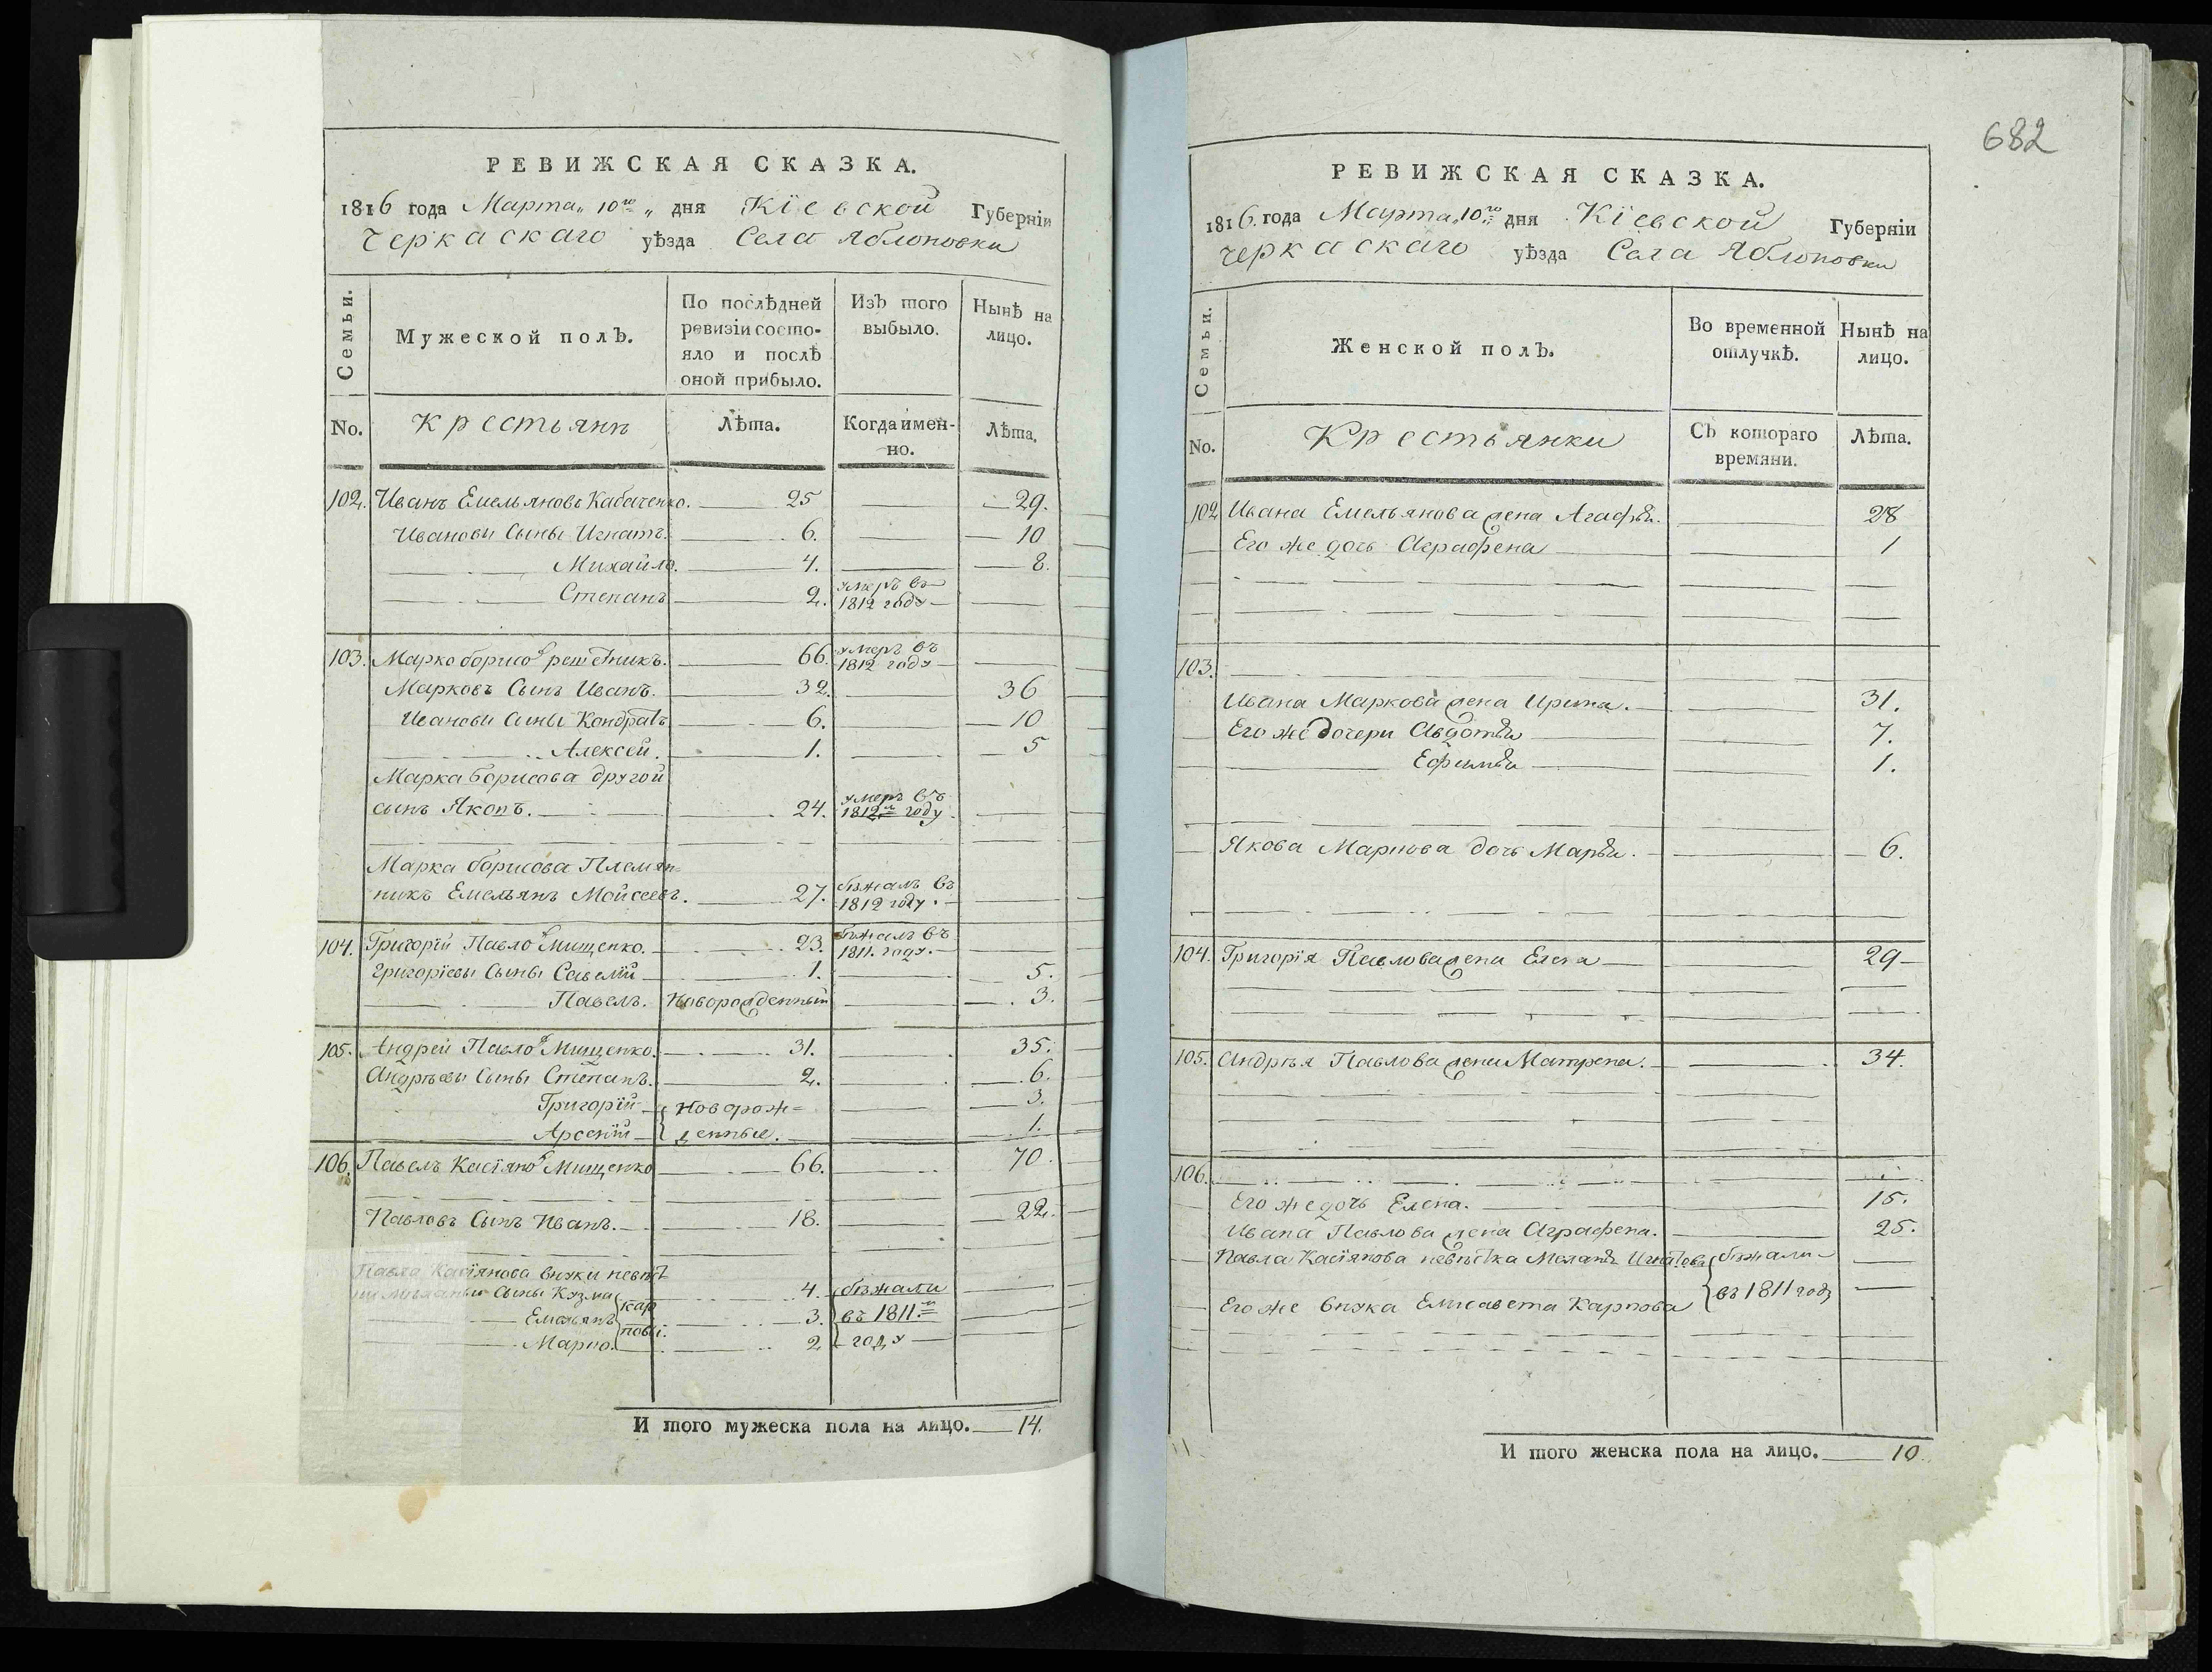 682
РЕВИЖСКАЯ СКАЗКА.
1816 года Марта 10го дня Кіевской Губерніи
Черкаскаго уѣзда Села Яблоновки
Семьи.
Мужеской полъ.
По послѣдней ревизіи состо-
яло и послѣ оной прибыло.
Изъ того выбыло.
Нынѣ на лицо.
No. Крестьянъ Лѣта. Когда имен-
но. Лѣта.
102. Иванъ Емельяновъ Кабаченко. 25 29.
Иванови Сыны Игнатъ. 6. 10
Михайло. 4. 8.
Степанъ 2. умеръ въ
1812 году
103. Марко борисовъ решетникъ. 66. умеръ въ
1812 году
Марковъ Сынъ Иванъ. 32. 36
Иванови Сыны Кондратъ 6. 10
Алексей. 1. 5
Марка Борисова другой
сынъ Якопъ. 24. умеръ въ
1812м году
Марка борисова Племян-
никъ Емельянъ Мойсеевъ. 27. бѣжалъ въ
1812 году.
104. Григорій Павловъ Мищенко. 23. бѣжалъ въ
1811. году.
Григоріевы Сыны Савелій 1. 5.
Павелъ. Новорожденный 3.
105. Андрей Павловъ Мищенко. 31. 35.
Андрѣевы Сыны Степанъ. 2. 6.
Григорій Новорож= 3.
Арсеній денные. 1.
106. Павелъ Касіяновъ Мищенко 66. 70.
Павловъ Сынъ Иванъ. 18. 22.
Павла Касіянова внуки невѣст
Сыны Козма 4. бѣжали
Емельянъ Кар 3. въ 1811м
Марко. пови. 2 году
И того мужеска пола на лицо. 14.
РЕВИЖСКАЯ СКАЗКА.
1816. года Марта 10го дня Кіевской Губерніи
Черкаскаго уѣзда Села Яблоновки
Семьи.
Женской полъ.
Во временной отлучкѣ.
Нынѣ на лицо.
No. Крестьянки Съ котораго
времяни. Лѣта.
102 Ивана Емельянова жена Агафья. 28
Его же дочь Аграфена 1
103.
Ивана Маркова жена Ирина. 31.
Его же дочери Авдотья 7.
Ефимья 1.
Якова Маркова дочь Марья. 6.
104. Григорія Павлова жена Елена 29
105. Андрѣя Павлова жена Матрена. 34.
106.
Его же дочь Елена. 15.
Ивана Павлова жена Аграфена. 25.
Павла Касіянова невѣстка Меланья Игнатова бѣжали
Его же внука Елисавета Карпова въ 1811 году
И того женска пола на лицо. 10.